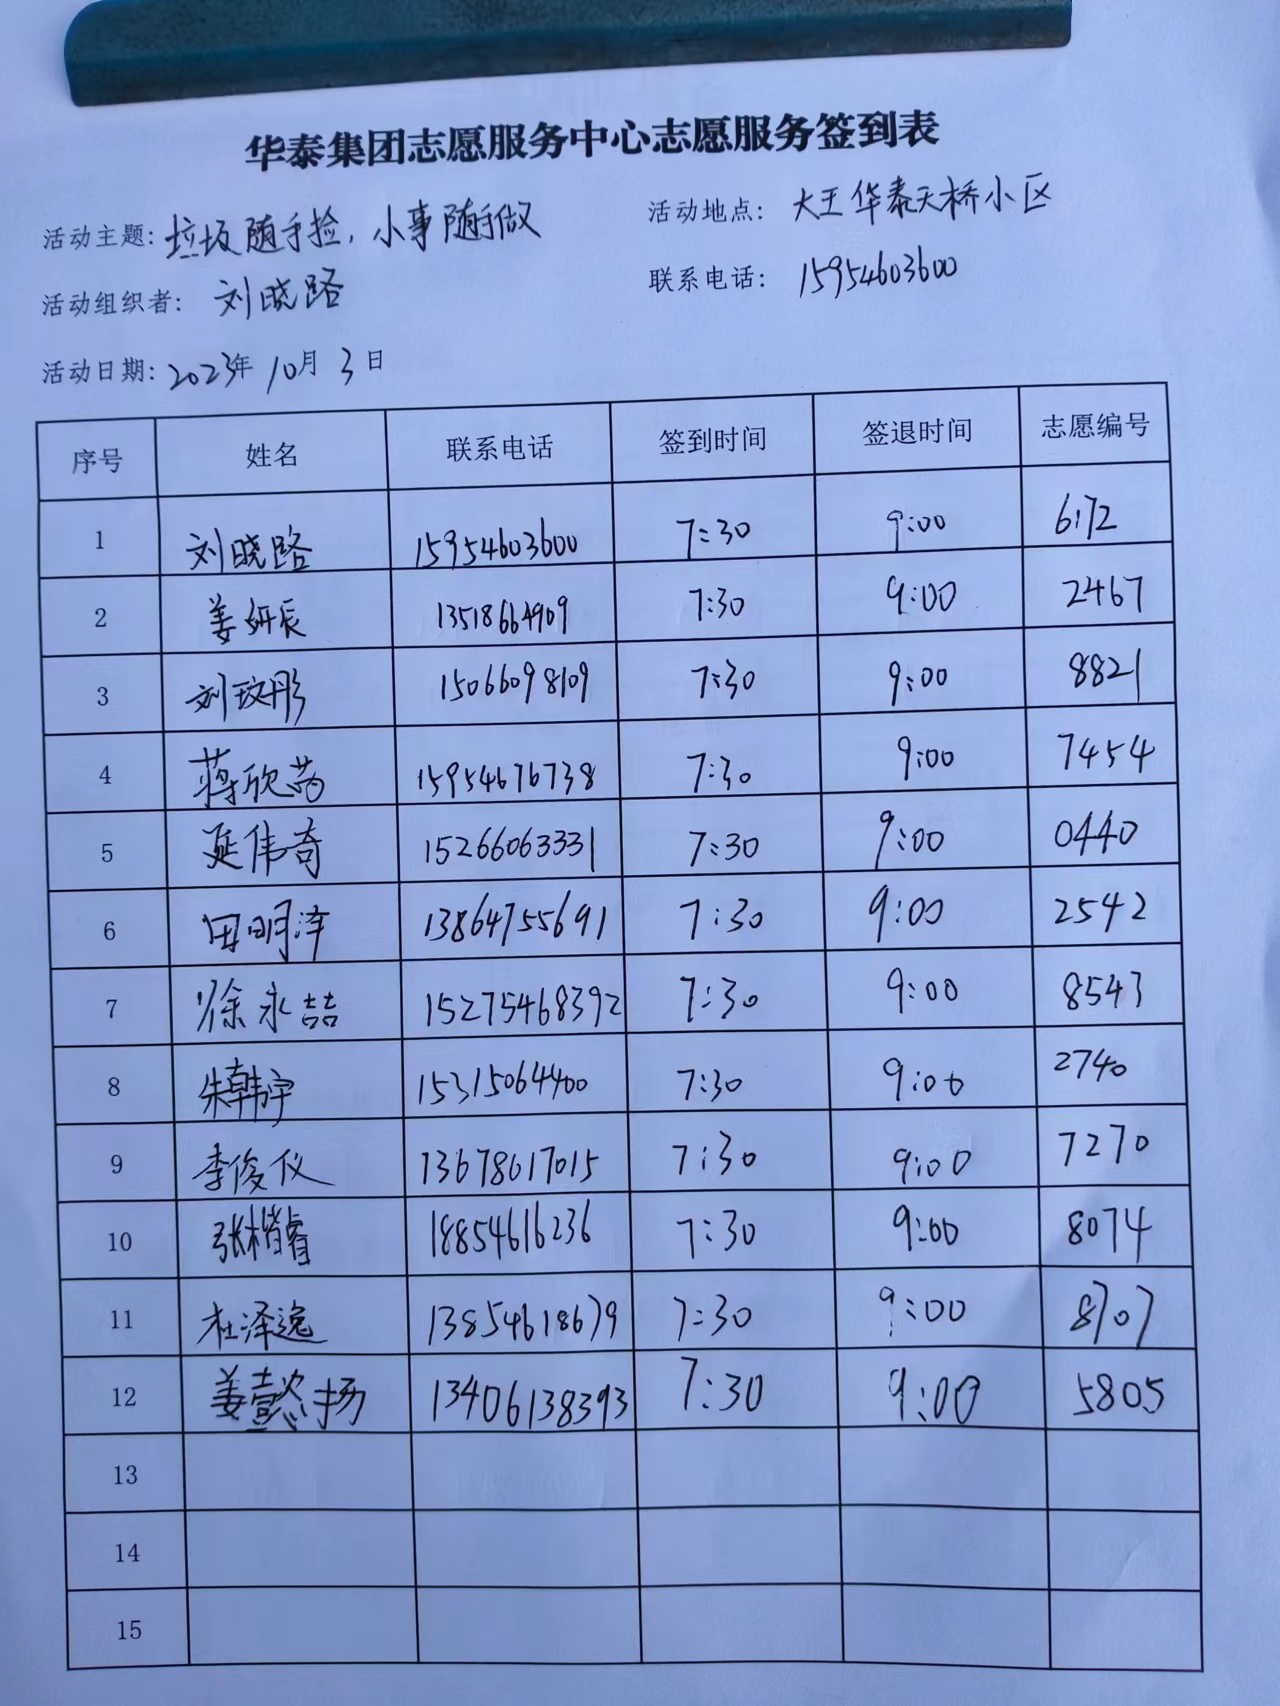 华泰集团志愿服务中心志愿服务签到表
活动主题: 垃圾随手捡，小事随手做 活动地点: 大王华泰天桥小区
活动组织者: 刘晓路 联系电话: 15954603600
活动日期: 2023年10月3日
序号 姓名 联系电话 签到时间 签退时间 志愿编号
1 刘晓路 15954603600 7:30 9:00 6172
2 姜妍辰 13518664909 7:30 9:00 2467
3 刘玟彤 15066098109 7:30 9:00 8821
4 蒋欣芮 15954676738 7:30 9:00 7454
5 延伟奇 15266063331 7:30 9:00 0440
6 田明泽 13864755691 7:30 9:00 2542
7 徐永喆 15275468392 7:30 9:00 8543
8 朱韩宇 15315064400 7:30 9:00 2740
9 李俊仪 13678617015 7:30 9:00 7270
10 张楷睿 18854616236 7:30 9:00 8074
11 杜泽逸 13854618679 7:30 9:00 8707
12 姜懿扬 13406138393 7:30 9:00 5805
13
14
15